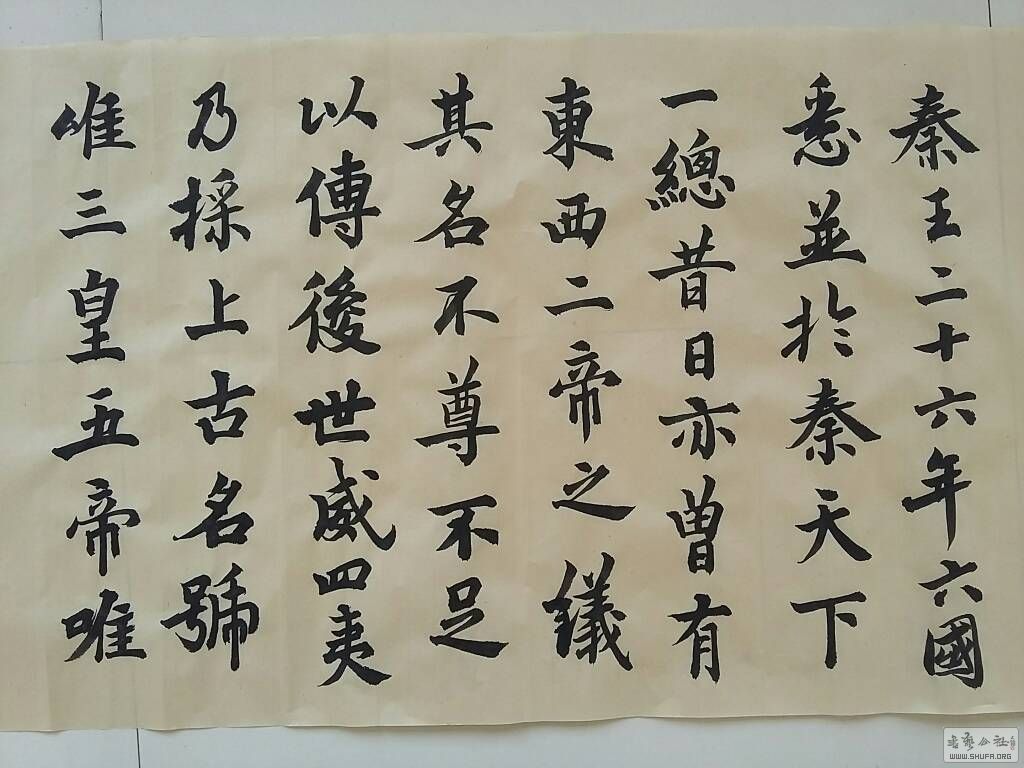 秦王二十六年六國
悉並於秦天下
一總昔日亦曾有
東西二帝之議
其名不尊不足
以傳後世威四夷
乃採上古名號
唯三皇五帝唯
WWW.SHUFA.ORG